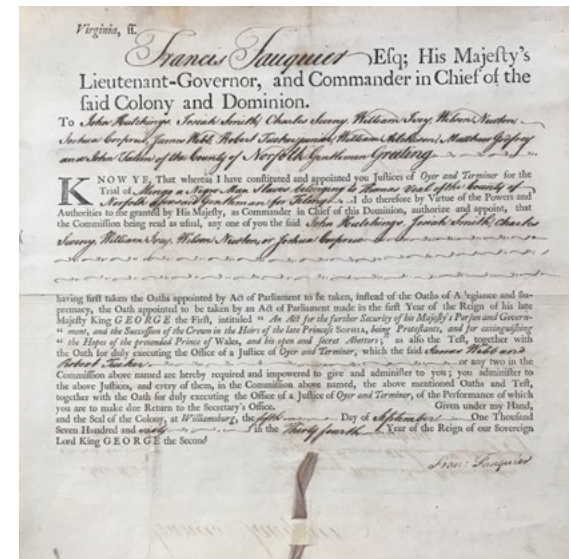 Virginia, ſſ.
Francis Fauquier Esq; His Majeſty's
Lieutenant-Governor, and Commander in Chief of the
ſaid Colony and Dominion.
To John Hutchings, Josiah Smith, Charles Sweny, William Ivy, Wilson Newton,
Joshua Corprew, James Webb, Robert Tucker junior, William Aitchison, Matthew Godfrey
and John Tatem of the County of Norfolk Gentlemen Greeting.
KNOW YE, That whereas I have conſtituted and appointed you Juſtices of Oyer and Terminer for the
Trial of Mingo a Negro Man Slave belonging to Thomas Veal of the County of
Norfolk aforesaid Gentleman for Felony I do therefore by Virtue of the Powers and
Authorities to me granted by His Majeſty, as Commander in Chief of this Dominion, authorize and appoint, that
the Commiſſion being read as uſual, any one of you the ſaid John Hutchings, Josiah Smith, Charles
Sweny, William Ivy, Wilson Newton, or Joshua Corprew
having firſt taken the Oaths appointed by Act of Parliament to be taken, inſtead of the Oaths of Allegiance and Su-
premacy, the Oath appointed to be taken by an Act of Parliament made in the firſt Year of the Reign of his late
Majeſty King GEORGE the Firſt, intituled " An Act for the further Security of his Majeſty's Perſon and Govern-
" ment, and the Succeſſion of the Crown in the Heirs of the late Princeſs SOPHIA, being Proteſtants, and for extinguiſhing
" the Hopes of the pretended Prince of Wales, and his open and ſecret Abettors; " as alſo the Teſt, together with
the Oath for duly executing the Office of a Juſtice of Oyer and Terminer, which the ſaid James Webb and
Robert Tucker or any two in the
Commiſſion above named are hereby required and impowered to give and adminiſter to you; you adminiſter to
the above Juſtices, and every of them, in the Commiſſion above named, the above mentioned Oaths and Teſt,
together with the Oath for duly executing the Office of a Juſtice of Oyer and Terminer, of the Performance of which
you are to make due Return to the Secretary's Office. Given under my Hand,
and the Seal of the Colony, at Williamſburg, the fifth Day of September One Thouſand
Seven Hundred and sixty in the Thirty fourth Year of the Reign of our Sovereign
Lord King GEORGE the Second
Fran: Fauquier